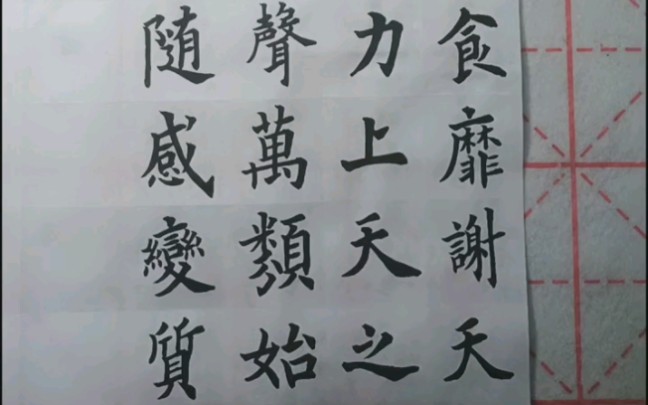 食靡謝天
力上天之
聲萬類始
随感變質